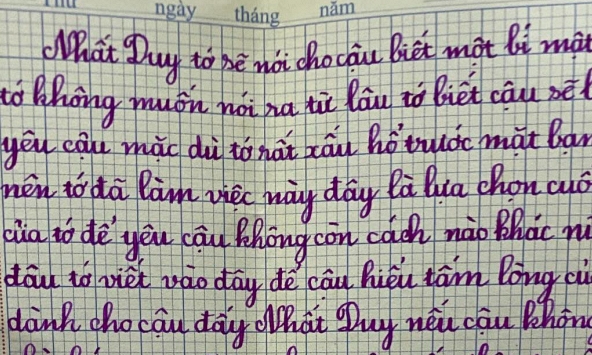 ngày tháng năm
Nhất Duy tớ sẽ nói cho cậu biết một bí mật
tớ không muốn nói ra từ lâu tớ biết cậu sẽ
yêu cậu mặc dù tớ rất xấu hổ trước mặt bạn
nên tớ đã làm việc này đây là lựa chọn
của tớ để yêu cậu không còn cách nào khác
đâu tớ viết vào đây để cậu hiểu tấm lòng
dành cho cậu đấy Nhất Duy nếu cậu không